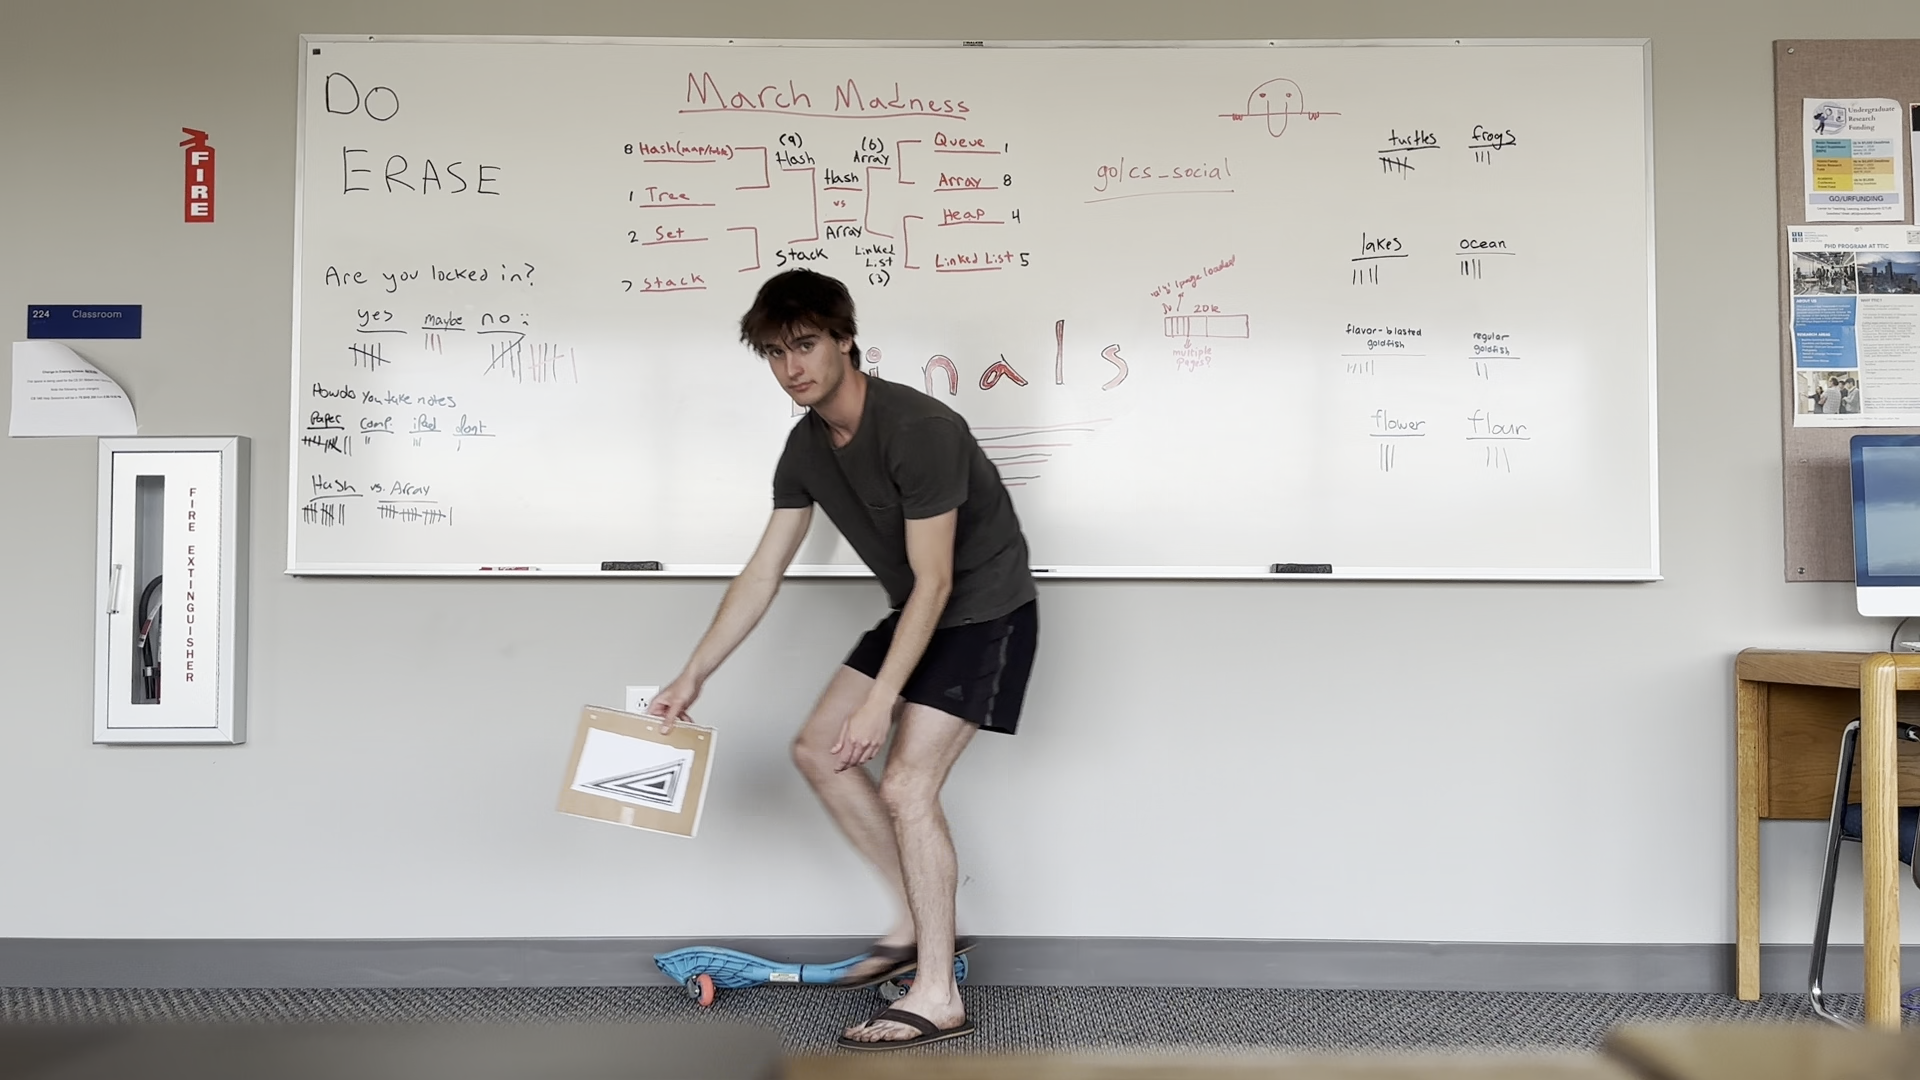 FIRE
224 Classroom
FIRE EXTINGUISHER
DO
ERASE
Are you locked in?
yes maybe no :
How do you take notes
Paper comp. iPad dont
Hash vs. Array
March Madness
8 Hash(map/table)
1 Tree
2 Set
7 Stack
(9)
Hash
Stack
Hash
vs
Array
(6)
Array
Linked
List
(3)
Queue 1
Array 8
Heap 4
Linked List 5
inals
go/cs_social
page loaded!
20k
multiple
pages?
turtles frogs
lakes ocean
flavor-blasted
goldfish
regular
goldfish
flower flour
Undergraduate
Research
Funding
GO/URFUNDING
PHD PROGRAM AT TTIC
ABOUT US
WHY TTIC?
RESEARCH AREAS